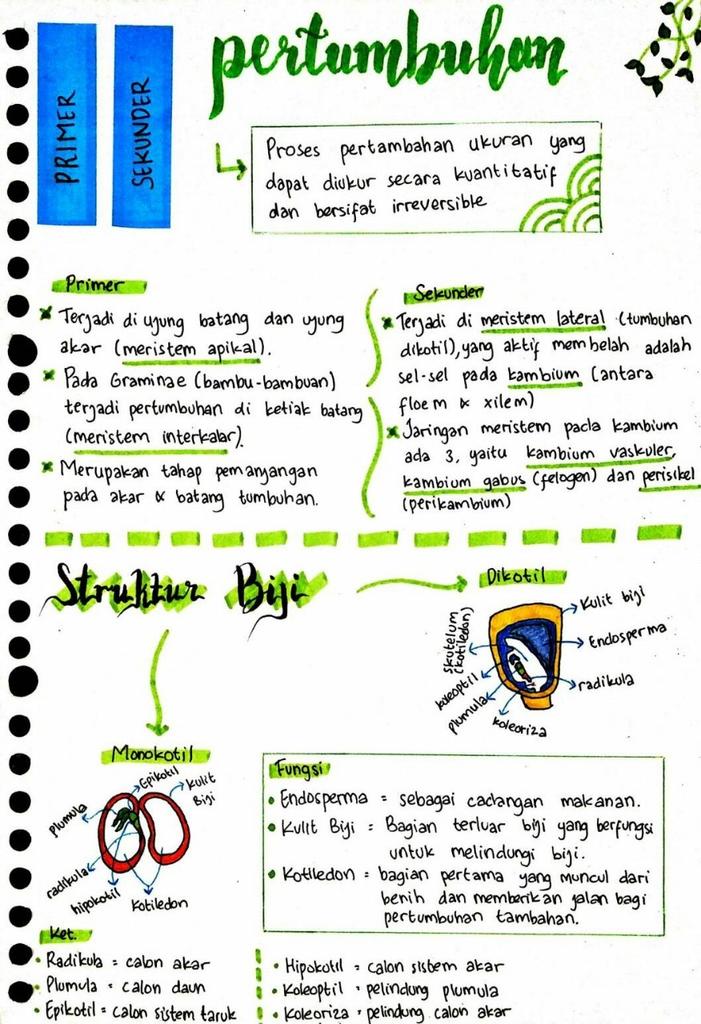 PRIMER
SEKUNDER
pertumbuhan
Proses pertambahan ukuran yang
dapat diukur secara kuantitatif
dan bersifat irreversible
Primer
Terjadi di ujung batang dan ujung
akar (meristem apikal).
Pada Graminae (bambu-bambuan)
terjadi pertumbuhan di ketiak batang
(meristem interkalar).
Merupakan tahap pemanjangan
pada akar & batang tumbuhan.
Sekunder
Terjadi di meristem lateral (tumbuhan
dikotil), yang aktif membelah adalah
sel-sel pada kambium (antara
floem & xilem)
Jaringan meristem pada kambium
ada 3, yaitu kambium vaskuler,
kambium gabus (felogen) dan perisikel
(perikambium)
Struktur Biji
Dikotil
Kulit biji
Endosperma
radikula
koleoriza
plumula
koleoptil
skutelum
(kotiledon)
Monokotil
Epikotil
Kulit
Biji
plumula
radikula
hipokotil
Kotiledon
Fungsi
• Endosperma = sebagai cadangan makanan.
• Kulit Biji = Bagian terluar biji yang berfungsi
untuk melindungi biji.
• Kotiledon = bagian pertama yang muncul dari
benih dan memberikan jalan bagi
pertumbuhan tambahan.
Ket.
• Radikula = calon akar
• Plumula = calon daun
• Epikotil = calon sistem taruk
• Hipokotil = calon sistem akar
• Koleoptil = pelindung plumula
• Koleoriza = pelindung calon akar